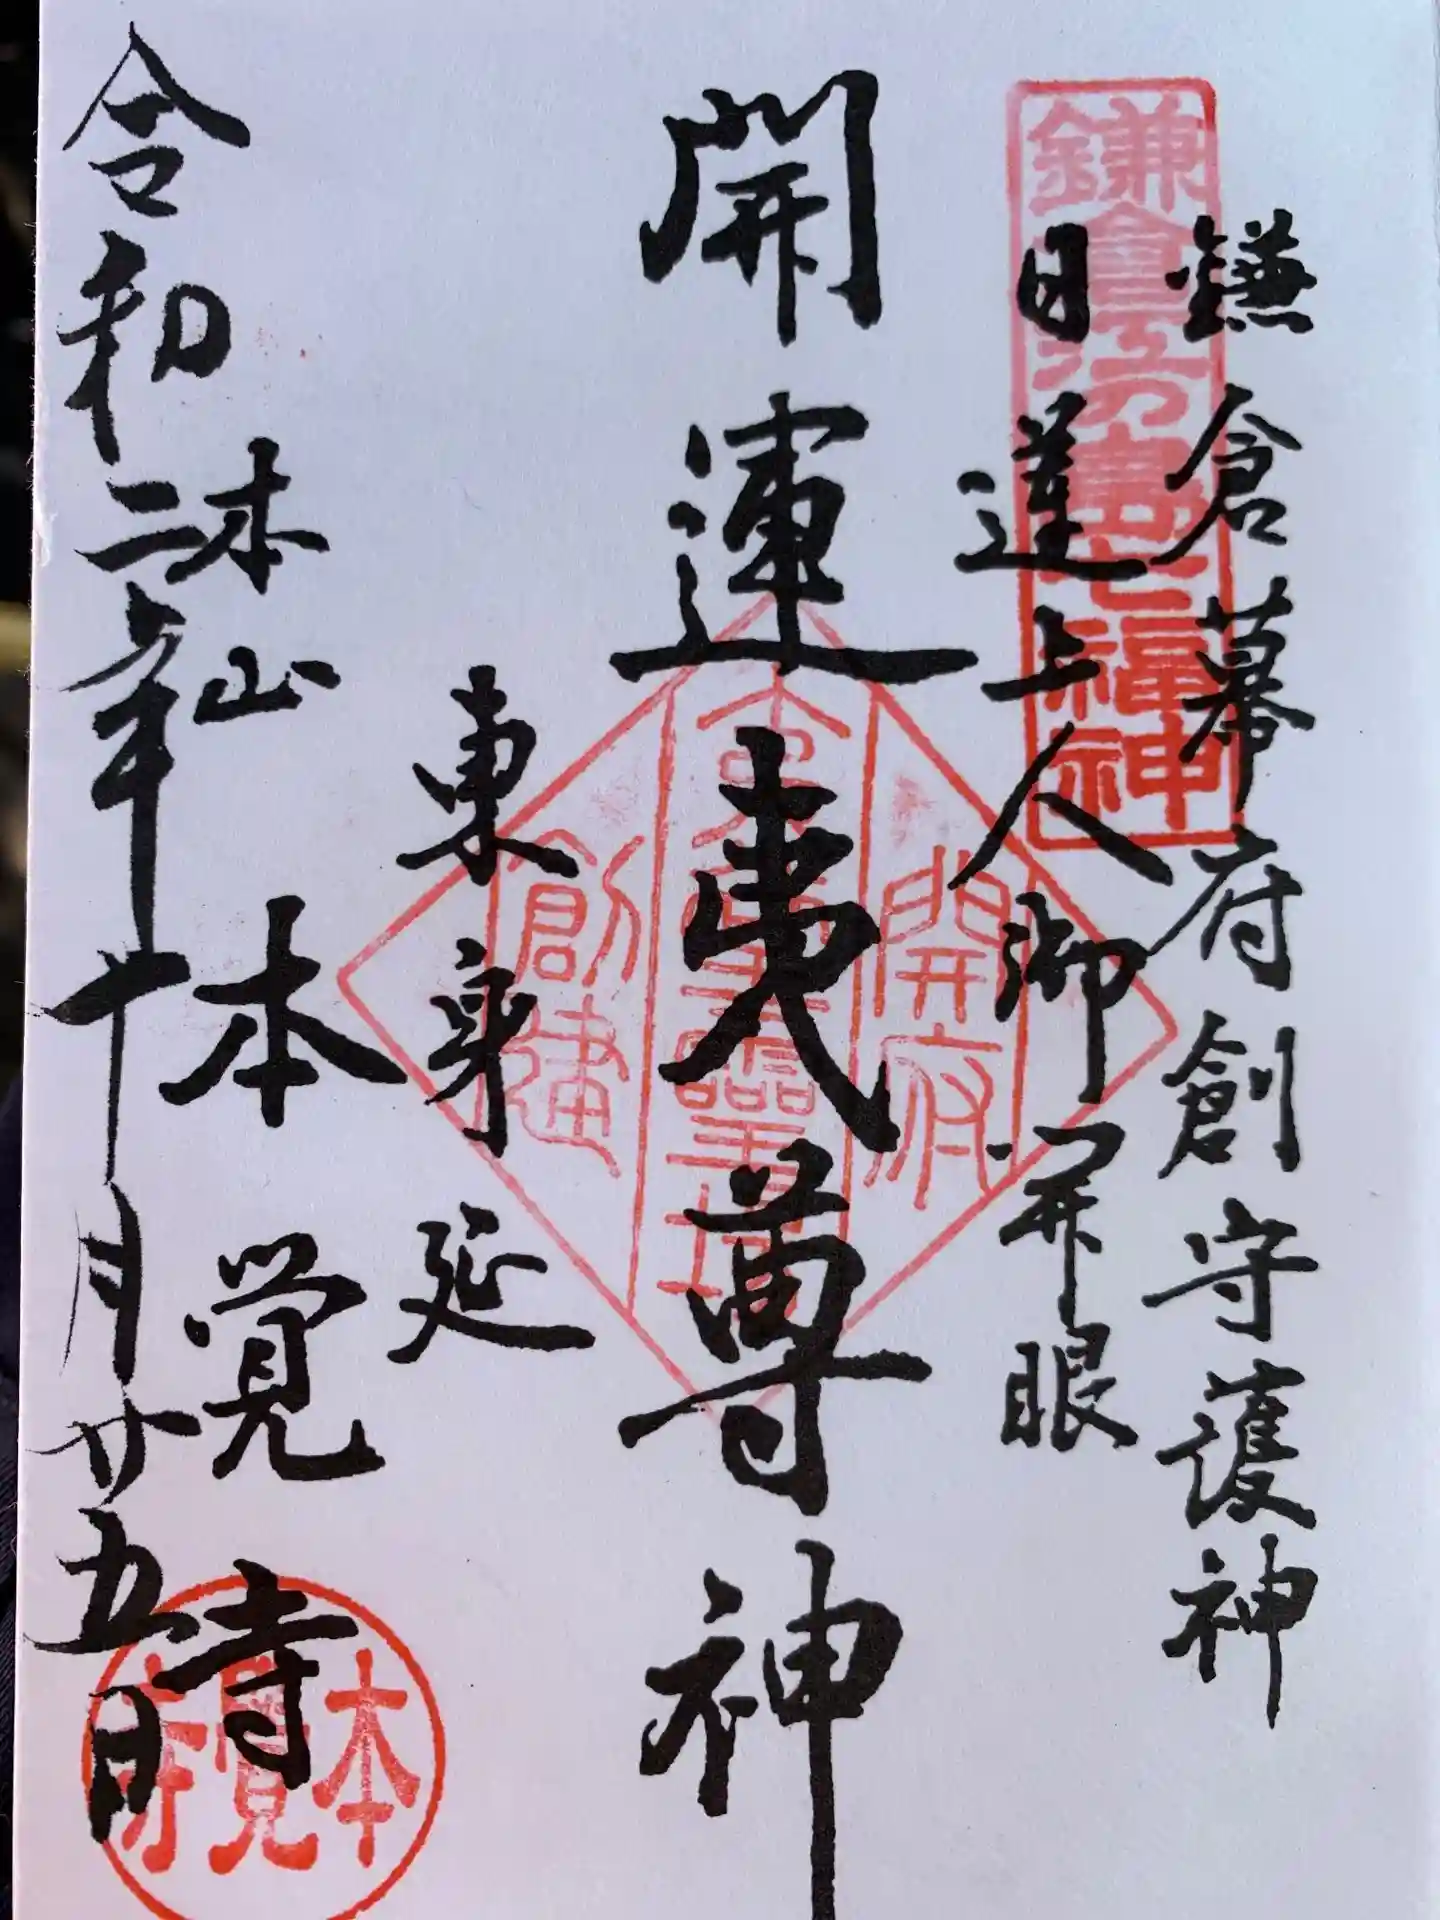 鎌倉幕府創守護神
鎌倉江の島七福神
日蓮上人御開眼
開運夷尊神
開府
創建
東身延
本山
本覚寺
本覺寺
令和二年十月廿五日